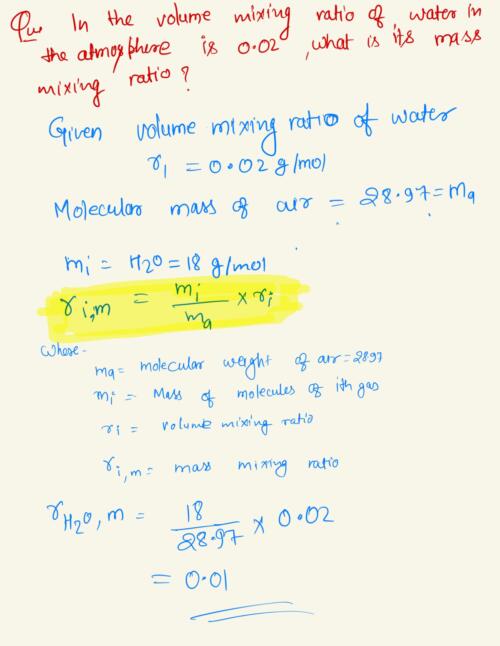 Qu. In the volume mixing ratio of water in
the atmosphere is 0.02, what is its mass
mixing ratio?
Given volume mixing ratio of water
r₁ = 0.02 g/mol
Molecular mass of air = 28.97 = Ma
mi = H₂O = 18 g/mol
r i,m = mi/ma × ri
Where-
ma = molecular weight of air = 2897
mi = Mass of molecules of ith gas
ri = volume mixing ratio
ri,m = mass mixing ratio
r H₂O, m = 18/28.97 × 0.02
= 0.01